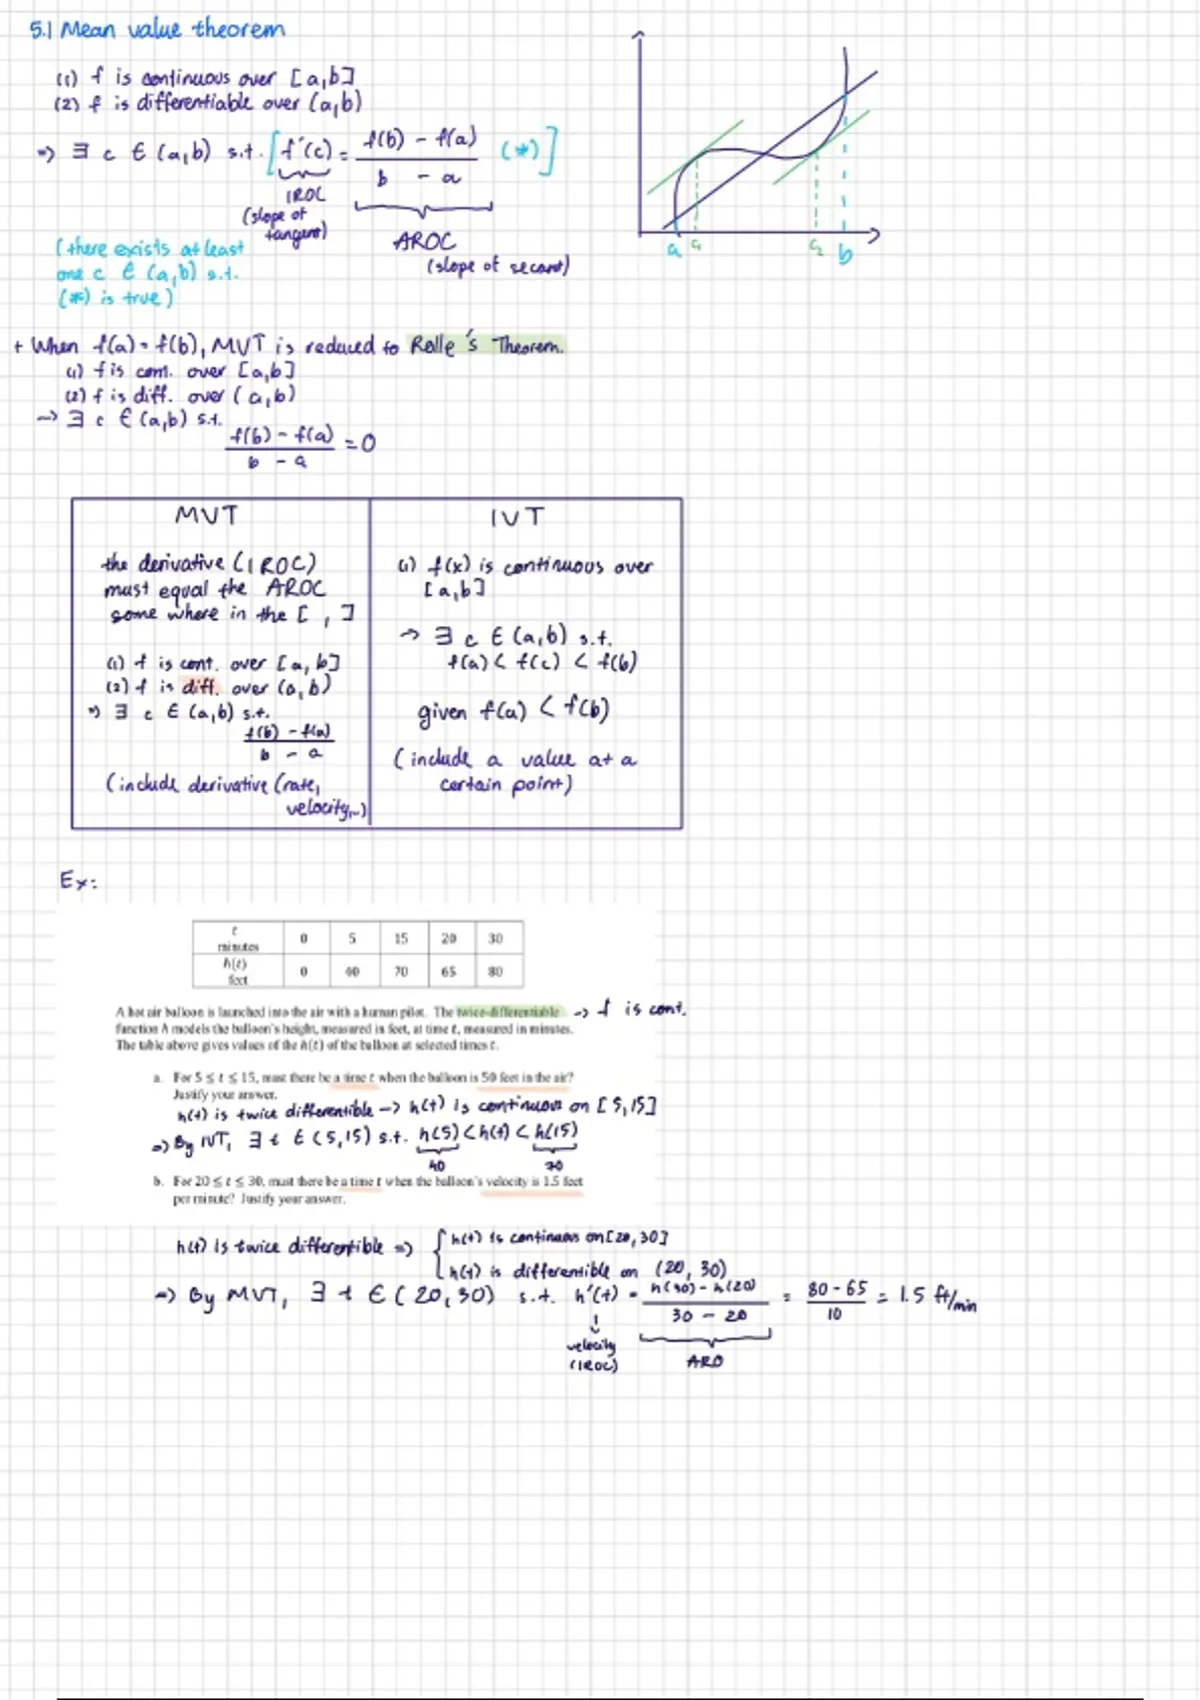 5.1 Mean value theorem
(1) f is continuous over [a,b]
(2) f is differentiable over (a,b)
=> ∃ c ∈ (a,b) s.t. [f'(c) = f(b) - f(a) / b - a (*)]
IROC
(slope of tangent)
AROC
(slope of secant)
(there exists at least
one c ∈ (a,b) s.t.
(*) is true)
a c₁ c₂ b
+ When f(a) = f(b), MVT is reduced to Rolle's Theorem.
(1) f is cont. over [a,b]
(2) f is diff. over (a,b)
-> ∃ c ∈ (a,b) s.t.
f(b) - f(a) / b - a = 0
MVT
the derivative (IROC)
must equal the AROC
some where in the [ , ]
(1) f is cont. over [a, b]
(2) f is diff. over (a, b)
=> ∃ c ∈ (a,b) s.t.
f(b) - f(a) / b - a
(include derivative (rate,
velocity,...)
IVT
(1) f(x) is continuous over
[a,b]
-> ∃ c ∈ (a,b) s.t.
f(a) < f(c) < f(b)
given f(a) < f(b)
(include a value at a
certain point)
Ex:
t minutes 0 5 15 20 30
h(t) feet 0 40 70 65 80
A hot air balloon is launched into the air with a human pilot. The twice-differentiable -> f is cont.
function h models the balloon's height, measured in feet, at time t, measured in minutes.
The table above gives values of the h(t) of the balloon at selected times t.
a. For 5 ≤ t ≤ 15, must there be a time t when the balloon is 50 feet in the air?
Justify your answer.
h(t) is twice differentible -> h(t) is continuous on [5,15]
=> By IVT, ∃ t ∈ (5,15) s.t. h(5) < h(t) < h(15)
40 70
b. For 20 ≤ t ≤ 30, must there be a time t when the balloon's velocity is 1.5 feet
per minute? Justify your answer.
h(t) is twice differentible => { h(t) is continuous on [20, 30]
h(t) is differentible on (20, 30)
=> By MVT, ∃ t ∈ (20,30) s.t. h'(t) = h(30) - h(20) / 30 - 20 = 80 - 65 / 10 = 1.5 ft/min
velocity
(IROC)
ARO